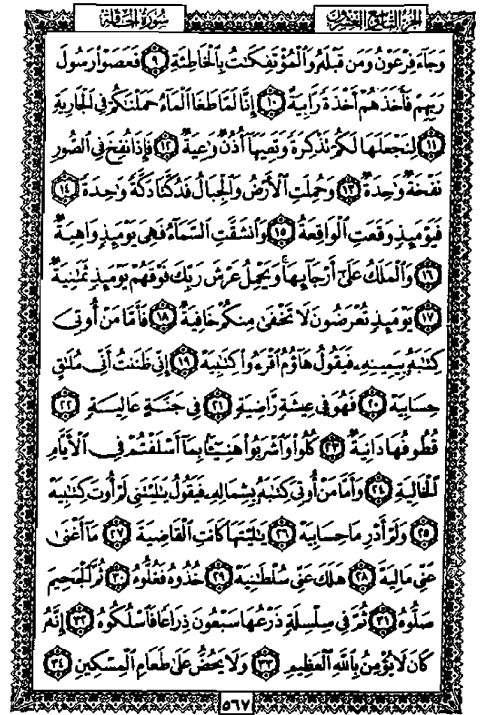 الجزء التاسع والعشرون
سورة الحاقة
وَجَآءَ فِرْعَوْنُ وَمَن قَبْلَهُۥ وَٱلْمُؤْتَفِكَٰتُ بِٱلْخَاطِئَةِ ٩ فَعَصَوْا۟ رَسُولَ
رَبِّهِمْ فَأَخَذَهُمْ أَخْذَةً رَّابِيَةً ١٠ إِنَّا لَمَّا طَغَا ٱلْمَآءُ حَمَلْنَٰكُمْ فِى ٱلْجَارِيَةِ
١١ لِنَجْعَلَهَا لَكُمْ تَذْكِرَةً وَتَعِيَهَآ أُذُنٌ وَٰعِيَةٌ ١٢ فَإِذَا نُفِخَ فِى ٱلصُّورِ
نَفْخَةٌ وَٰحِدَةٌ ١٣ وَحُمِلَتِ ٱلْأَرْضُ وَٱلْجِبَالُ فَدُكَّتَا دَكَّةً وَٰحِدَةً ١٤
فَيَوْمَئِذٍ وَقَعَتِ ٱلْوَاقِعَةُ ١٥ وَٱنشَقَّتِ ٱلسَّمَآءُ فَهِىَ يَوْمَئِذٍ وَاهِيَةٌ
١٦ وَٱلْمَلَكُ عَلَىٰٓ أَرْجَآئِهَا وَيَحْمِلُ عَرْشَ رَبِّكَ فَوْقَهُمْ يَوْمَئِذٍ ثَمَٰنِيَةٌ
١٧ يَوْمَئِذٍ تُعْرَضُونَ لَا تَخْفَىٰ مِنكُمْ خَافِيَةٌ ١٨ فَأَمَّا مَنْ أُوتِىَ
كِتَٰبَهُۥ بِيَمِينِهِۦ فَيَقُولُ هَآؤُمُ ٱقْرَءُوا۟ كِتَٰبِيَهْ ١٩ إِنِّى ظَنَنتُ أَنِّى مُلَٰقٍ
حِسَابِيَهْ ٢٠ فَهُوَ فِى عِيشَةٍ رَّاضِيَةٍ ٢١ فِى جَنَّةٍ عَالِيَةٍ ٢٢
قُطُوفُهَا دَانِيَةٌ ٢٣ كُلُوا۟ وَٱشْرَبُوا۟ هَنِيٓـًٔۢا بِمَآ أَسْلَفْتُمْ فِى ٱلْأَيَّامِ
ٱلْخَالِيَةِ ٢٤ وَأَمَّا مَنْ أُوتِىَ كِتَٰبَهُۥ بِشِمَالِهِۦ فَيَقُولُ يَٰلَيْتَنِى لَمْ أُوتَ كِتَٰبِيَهْ
٢٥ وَلَمْ أَدْرِ مَا حِسَابِيَهْ ٢٦ يَٰلَيْتَهَا كَانَتِ ٱلْقَاضِيَةَ ٢٧ مَآ أَغْنَىٰ
عَنِّى مَالِيَهْ ٢٨ هَلَكَ عَنِّى سُلْطَٰنِيَهْ ٢٩ خُذُوهُ فَغُلُّوهُ ٣٠ ثُمَّ ٱلْجَحِيمَ
صَلُّوهُ ٣١ ثُمَّ فِى سِلْسِلَةٍ ذَرْعُهَا سَبْعُونَ ذِرَاعًا فَٱسْلُكُوهُ ٣٢ إِنَّهُۥ
كَانَ لَا يُؤْمِنُ بِٱللَّهِ ٱلْعَظِيمِ ٣٣ وَلَا يَحُضُّ عَلَىٰ طَعَامِ ٱلْمِسْكِينِ ٣٤
٥٦٧